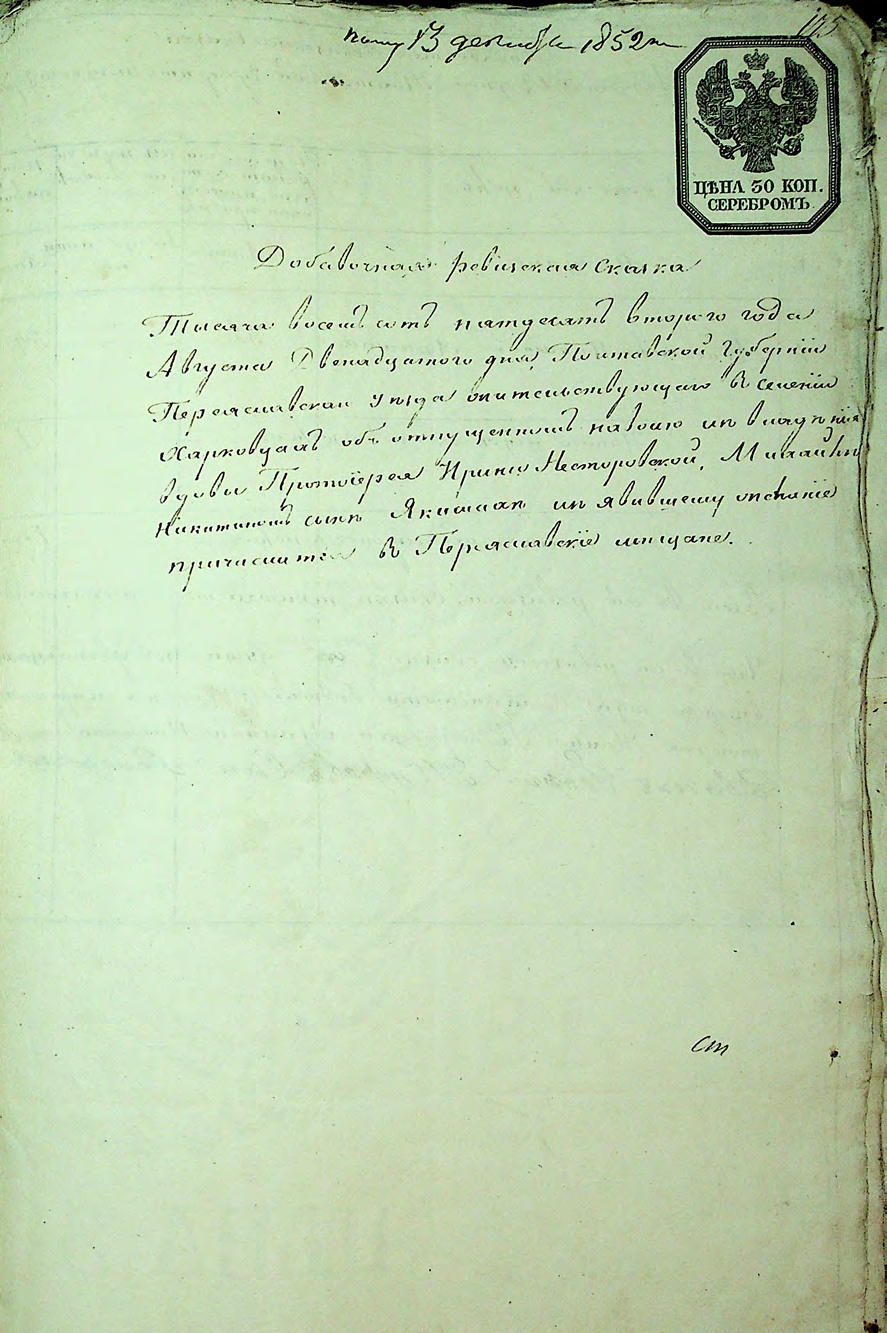 полу 13 декабря 1852 г
175
ЦѢНА 30 КОП.
СЕРЕБРОМЪ.
Добавочная ревизская Сказка
Тысяча восемъ сотъ пятдесятъ второго года
Августа Двенадцатого дня, Полтавской Губерніи
Переяславскаи уѣзда жительствующаго в селеніи
Харковцахъ объ отпущенномъ на волю изъ владѣнія
вдовы Протоіерея Ирины Несторовской, Михайлы
Никитиномъ сынѣ Якимахѣ изъявившему желаніе
причислится в Переяславскіе мещане.